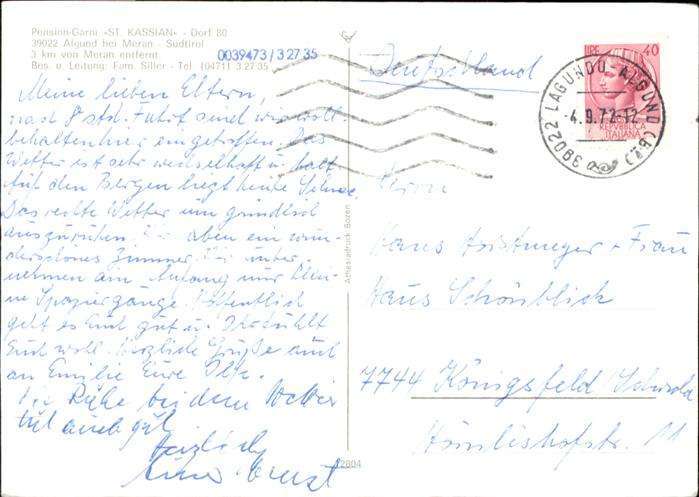 Pension-Garni «ST. KASSIAN» - Dorf 80
39022 Algund bei Meran - Südtirol
3 km von Meran entfernt
Bes. u. Leitung: Fam. Siller - Tel. (0471 1) 3 27 35
0039473/32735
Meine lieben Eltern,
nach 8 std. Fahrt sind wir wohl-
behalten hier eingetroffen. Das
Wetter ist sehr wechselhaft u. kalt
Auf den Bergen liegt heute Schnee.
Das rechte Wetter um gründlich
auszuruhen. aber ein wun-
derschönes Zimmer. unter-
nehmen am Anfang nur klei-
ne Spaziergänge. Hoffentlich
geht es Euch gut u. Ihr fühlt
Euch wohl. Herzliche Grüße auch
an Emilie Eure
Die Ruhe bei dem Wetter
tut auch gut.
Herzlich
Euer Ernst
Artesiadruck Bozen
2804
Deutschland
LIRE 40
REPVBBLICA
ITALIANA
39022 LAGUNDO-ALGUND (BZ)
-4.9.72-12
Herrn
Hans u. Frau
Haus Schönblick
7744 Königsfeld/Schwarzw.
11